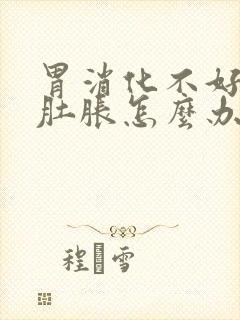 胃消化不好
肚脹怎麼办
程雪